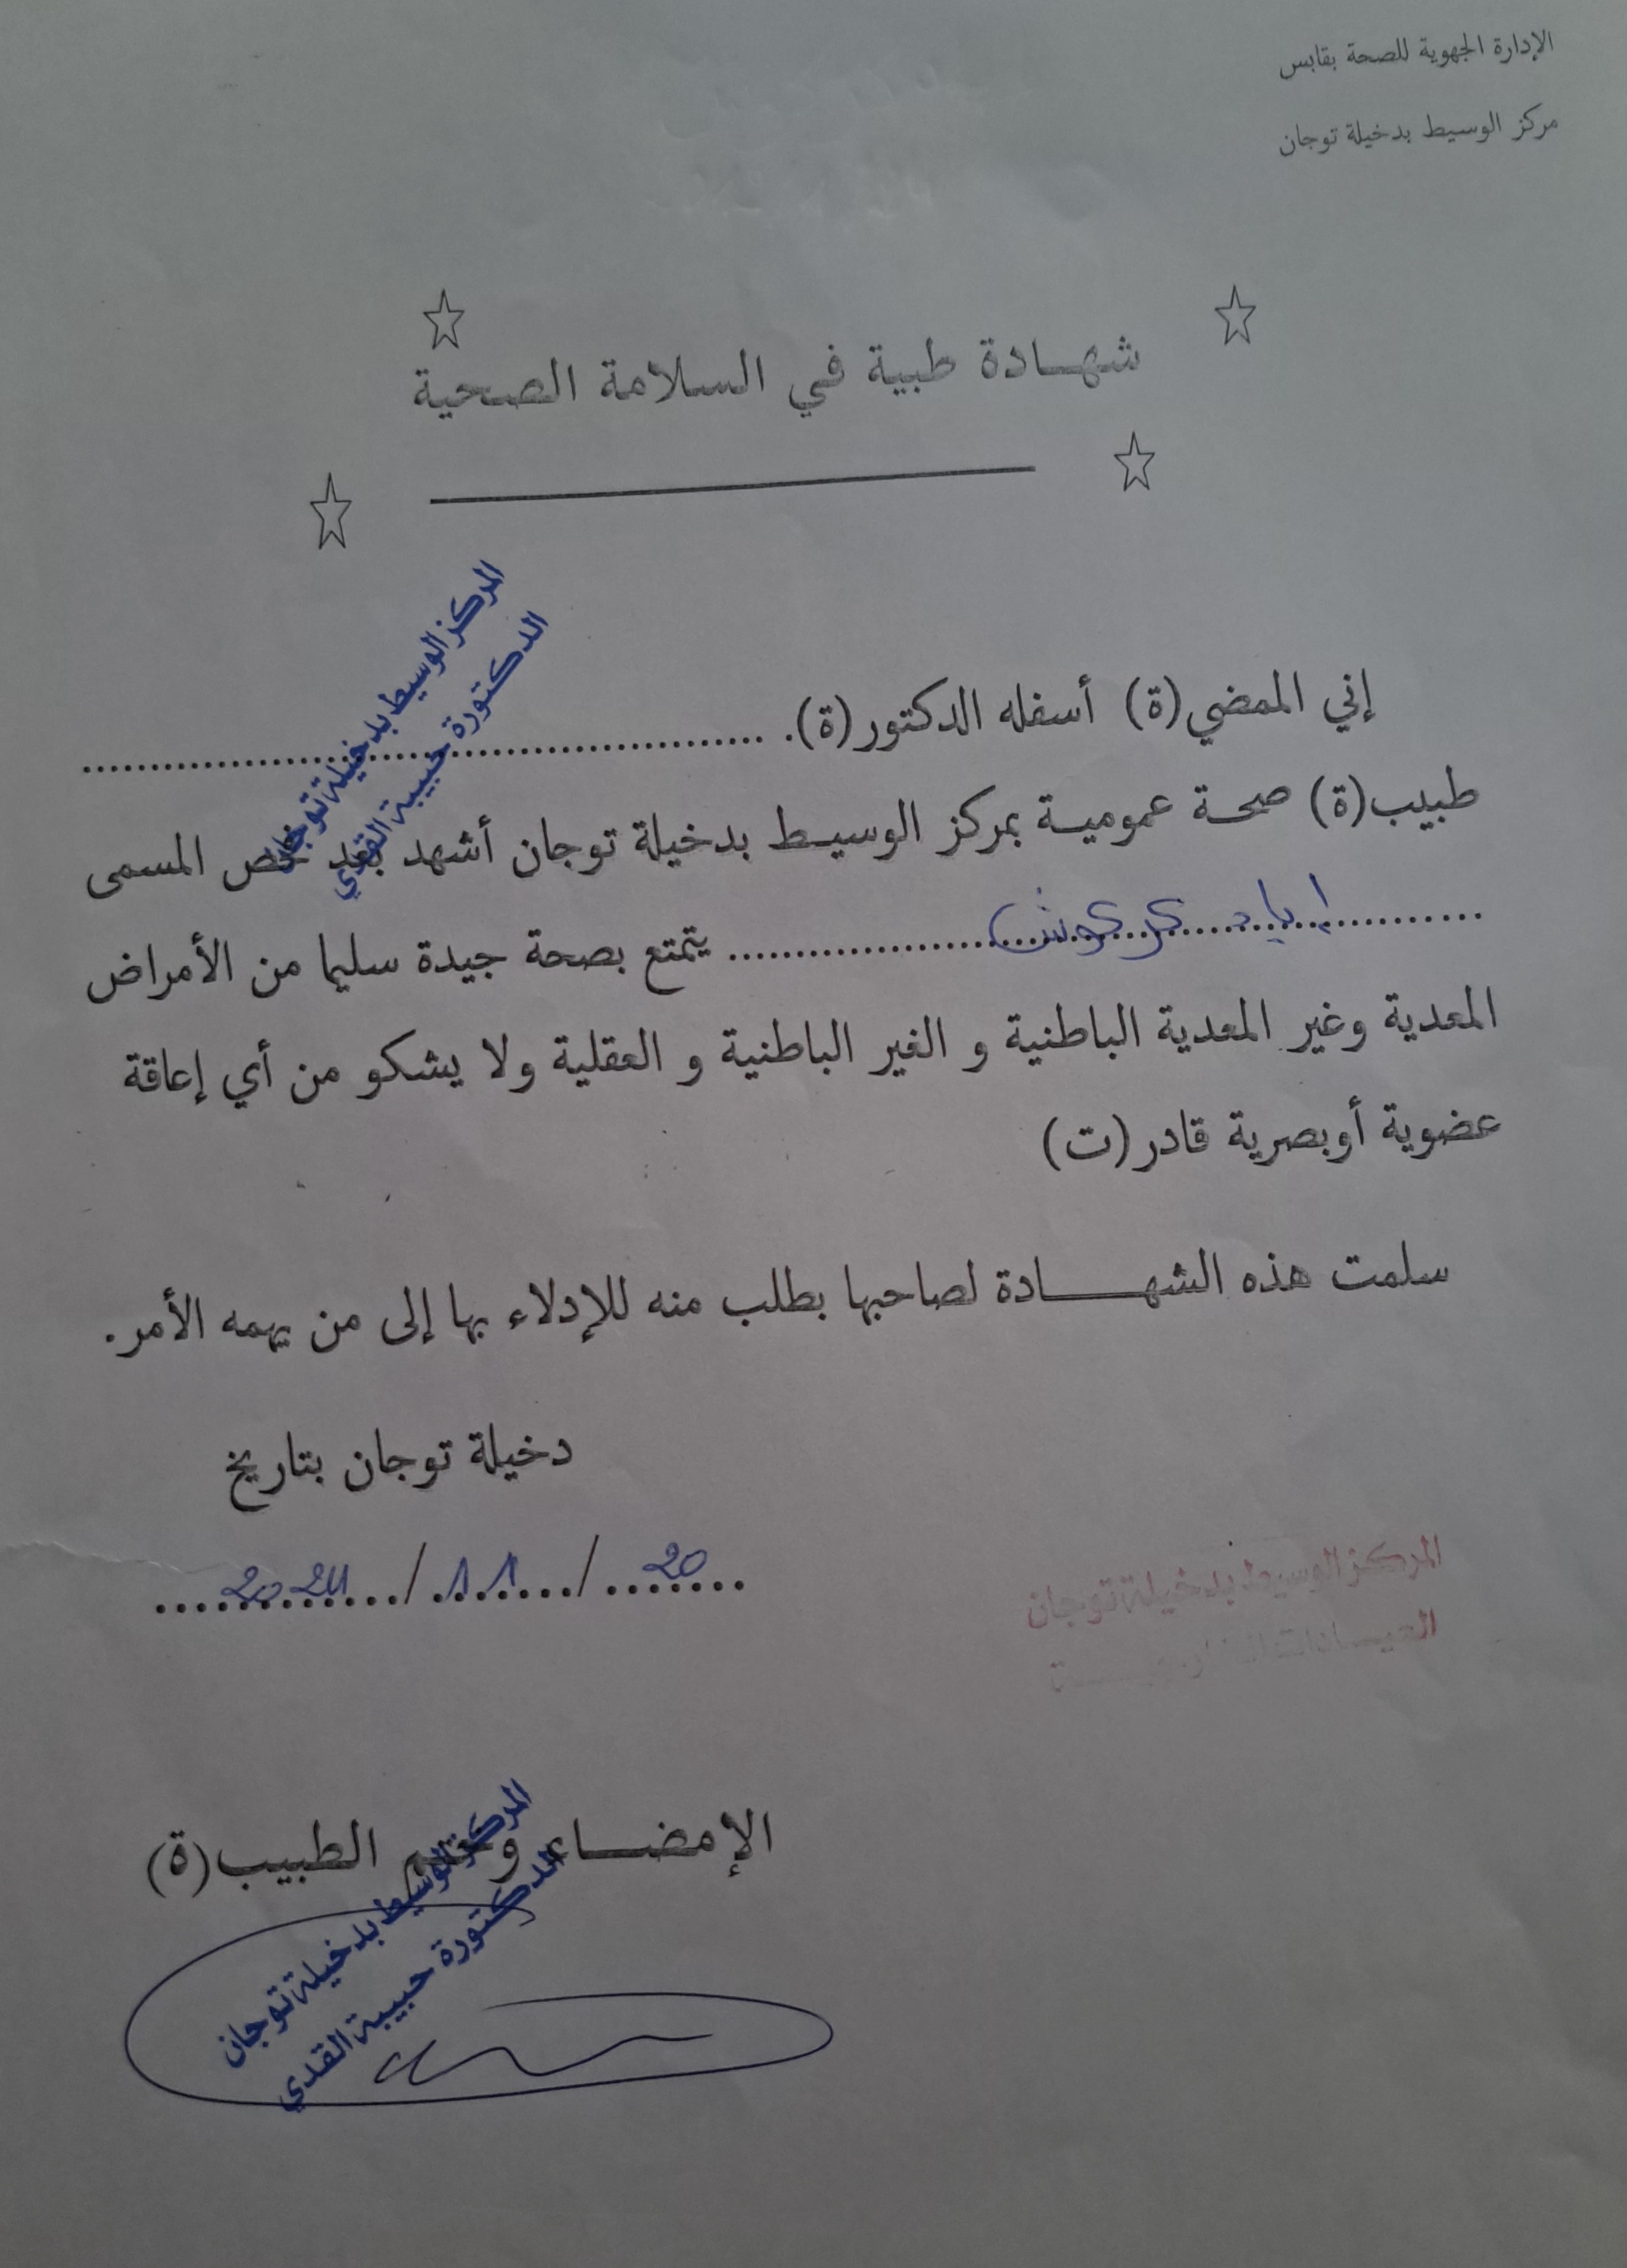 الإدارة الجهوية للصحة بقابس
مركز الوسيط بدخيلة توجان
شهادة طبية في السلامة الصحية
المركز الوسيط بدخيلة توجان
الدكتورة حبيبة القدي
إني الممضي (ة) أسفله الدكتور (ة). ..........................................
طبيب (ة) صحة عمومية بمركز الوسيط بدخيلة توجان أشهد بعد فحص المسمى
اياد كركوش يتمتع بصحة جيدة سليما من الأمراض
المعدية وغير المعدية الباطنية و الغير الباطنية و العقلية ولا يشكو من أي إعاقة
عضوية أوبصرية قادر (ت)
سلمت هذه الشهادة لصاحبها بطلب منه للإدلاء بها إلى من يهمه الأمر.
دخيلة توجان بتاريخ
20 / 11 / 2024
المركز الوسيط بدخيلة توجان
العيادات الخارجية
الإمضاء وختم الطبيب (ة)
المركز الوسيط بدخيلة توجان
الدكتورة حبيبة القدي